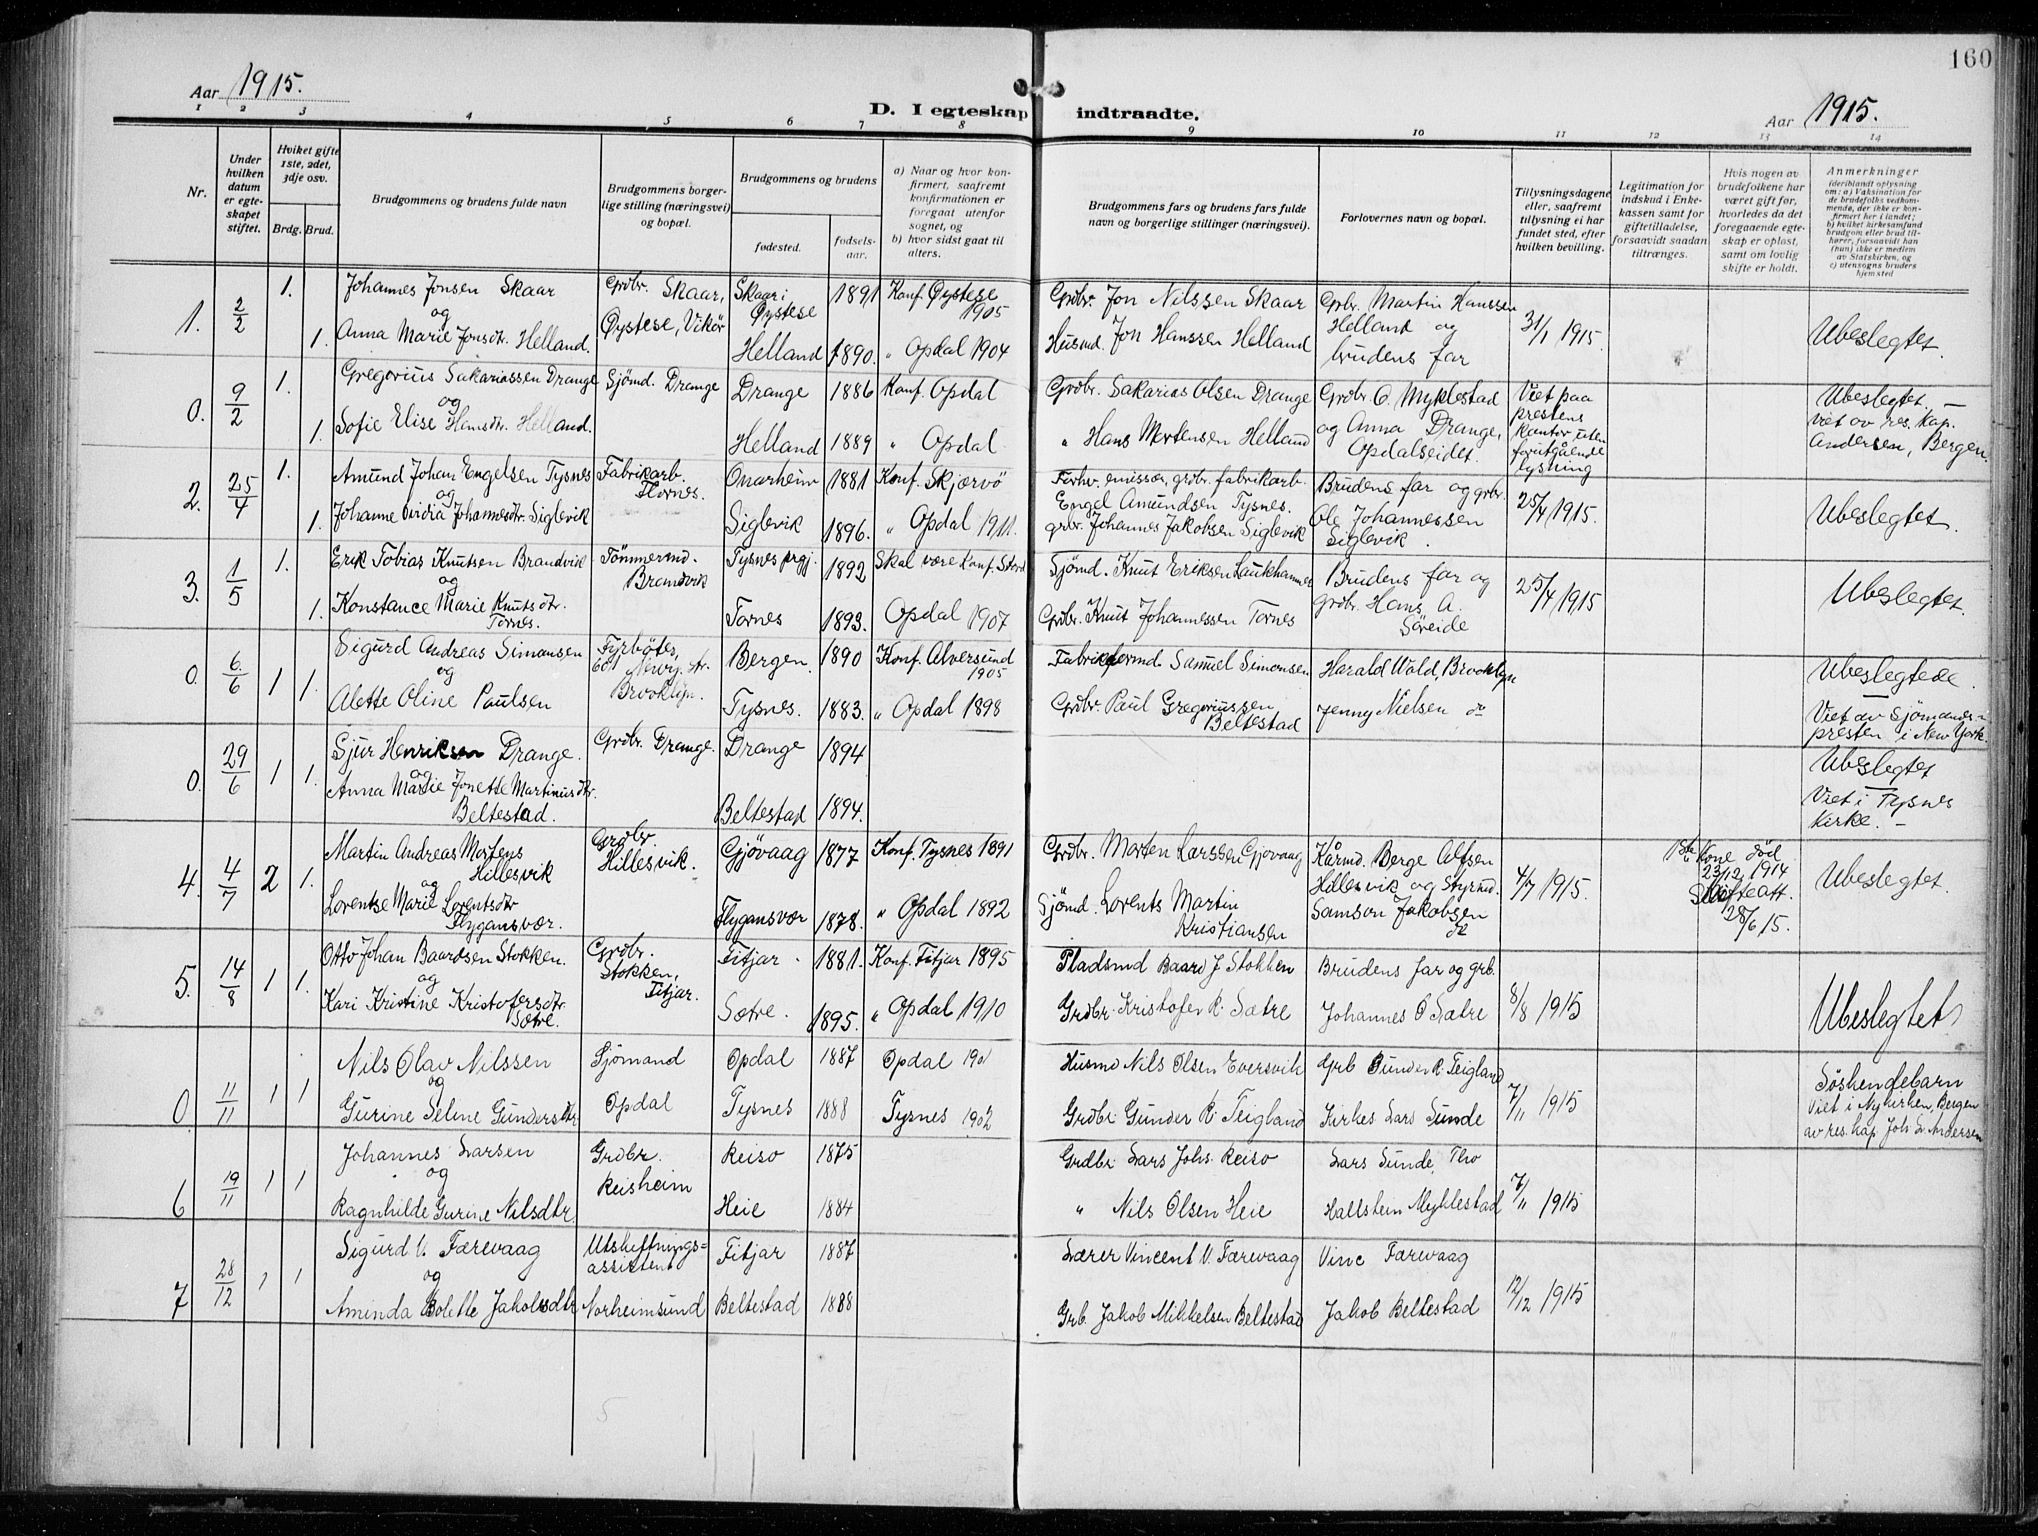 160
Aar 1915.
D. I egteskap indtraadte.
Aar 1915.
1 2 3 4 5 6 7 8 9 10 11 12 13 14
Nr.
Under hvilken datum er egteskapet stiftet.
Hvilket gifte 1ste, 2det, 3dje osv.
Brdg. Brud.
Brudgommens og brudens fulde navn
Brudgommens borgerlige stilling (næringsvei) og bopæl.
Brudgommens og brudens
fødested.
fødselsaar.
a) Naar og hvor konfirmert, saafremt konfirmationen er foregaat utenfor sognet, og
b) hvor sidst gaat til alters.
Brudgommens fars og brudens fars fulde navn og borgerlige stillinger (næringsvei).
Forlovernes navn og bopæl.
Tillysningsdagene eller, saafremt tillysning ei har fundet sted, efter hvilken bevilling.
Legitimation for indskud i Enkekassen samt for giftetilladelse, forsaavidt saadan tiltrænges.
Hvis nogen av brudefolkene har været gift før, hvorledes da det foregaaende egteskap er opløst, samt om lovlig skifte er holdt.
Anmerkninger (deriblandt oplysning om: a) Vaksination for de brudefolks vedkommende, der ikke er konfirmert her i landet; b) hvilket kirkesamfund brudgom eller brud tilhører, forsaavidt han (hun) ikke er medlem av Statskirken, og c) utensogns bruders hjemsted
1. 2/2 1. Johannes Jonsen Skaar Grdbr. Skaar, Øystese, Vikør Skaar i Øystese 1891 Konf. Øystese 1905 Grdbr. Jon Nilssen Skaar Grbr. Martin Hanssen Helland og brudens far 31/1 1915. Ubeslegtet.
og
1. Anna Marie Jonsdtr. Helland. Helland 1890. " Opdal 1904 Husmd. Jon Hanssen Helland
0. 9/2 1. Gregorius Sakariassen Drange Sjömd. Drange Drange 1886 Konf. Opdal Grdbr. Sakarias Olsen Drange Grdbr. O. Myklestad og Anna Drange, Opdalseidet. Viet paa prestens kontor uten forutgående lysning Ubeslegtet. — viet av res. kap. Andersen, Bergen.
og
1. Sofie Elise Hansdtr. Helland. Helland 1889 " Opdal " Hans Mortensen Helland
2. 25/4 1. Amund Johan Engelsen Tysnes Fabrikarb. Tornes. Onarheim 1881 Konf. Skjærvö Forhv. emissær, grdbr. fabrikarb. Engel Amundsen Tysnes. Brudens far og grbr. Ole Johannessen Siglevik. 25/4 1915. Ubeslegtet.
og
1. Johanne Ovidia Johannesdtr. Siglevik Siglevik 1896. " Opdal 1911. grbr. Johannes Jakobsen Siglevik
3. 1/5 1. Erik Tobias Knutsen Brandvik Tömmermd. Brandvik Tysnes prgj. 1892 Skal være Konf. Stord Sjömd. Knut Eriksen Laukhammer Brudens far og grdbr. Hans A. Söreide 25/4 1915 Ubeslegtet.
og
1. Konstance Marie Knutsdtr. Tornes. Tornes 1893. Opdal 1907 Grdbr. Knut Johannessen Tornes
0. 6/6 1 1. Sigurd Andreas Simonsen Fyrböter, Brooklyn. Bergen. 1890 Konf. Alversund 1905 Samuel Simonsen Harald Wold, Brooklyn Ubeslegtede. Viet av Sjömandspresten i New York.
og
Alette Oline Paulsen Tysnes. 1883. " Opdal 1898 Grdbr. Paul Gregoriussen Beltestad Jenny Nielsen do
0. 29/6 1 1. Sjur Henriksen Drange. Grdbr. Drange. Drange 1894 Ubeslegtet Viet i Tysnes Kirke. —
og
Anna Marie Jonette Martinusdtr. Beltestad. Beltestad 1894.
4. 4/7 2 1. Martin Andreas Mortens Hillesvik Grdbr. Hillesvik Gjövaag 1877 Konf. Tysnes 1891 Grdbr. Morten Larssen Gjövaag Kårmd. Berge Alfsen Hillesvik og Styrmd. Samson Jakobsen do 4/7 1915. 1ste Kone död 23/12 1914 Skifteatt. 28/6 15. Ubeslegtet.
og
Lorentse Marie Lorentsdtr Flygansvær. Flygansvær 1878. " Opdal 1892 Sjömd. Lorents Martin Kristiansen
5. 14/8 1 1. Otto Johan Baardsen Stokken. Grdbr. Stokken, Fitjar. Fitjar. 1881. Konf. Fitjar 1895 Pladsmd Baard J. Stokken Brudens far og grb. Johannes O Sætre 8/8 1915 Ubeslegtet
og
Kari Kristine Kristofersdtr Sætre. Sætre. 1895. " Opdal 1910 Grdbr. Kristofer R. Sætre
0 11/11 1 1 Nils Olav Nilssen Sjömand Opdal Opdal 1887 Opdal 1901 Husmd Nils Olsen Eversvik Grb Gunder R. Teigland 7/11 1915 Söskendebarn Viet i Nykirken, Bergen av res. kap. Joh. L. Andersen
og
Gurine Seline Gundersdtr Tysnes 1888 Tysnes 1902 Grdbr. Gunder R. Teigland Kirkes Lars Sunde
6 19/11 1 1 Johannes Larsen Grdbr. Reisheim Reiso 1875 Grdbr. Lars Johs. Reiso Lars Sunde, Tho 7/11 1915
og
Ragnhilde Gurine Nilsdtr. Heie 1884 " Nils Olsen Heie Hallstein Myklestad
7 28/12 1 1 Sigurd V. Færevaag Utskiftningsassistent Norheimsund Fitjar 1887 Lærer Vincent V. Færevaag Vinc Færevaag 12/12 1915
og
Aminda Bolette Jakobsdtr Beltestad 1888 Grb. Jakob Mikkelsen Beltestad Jakob Beltestad